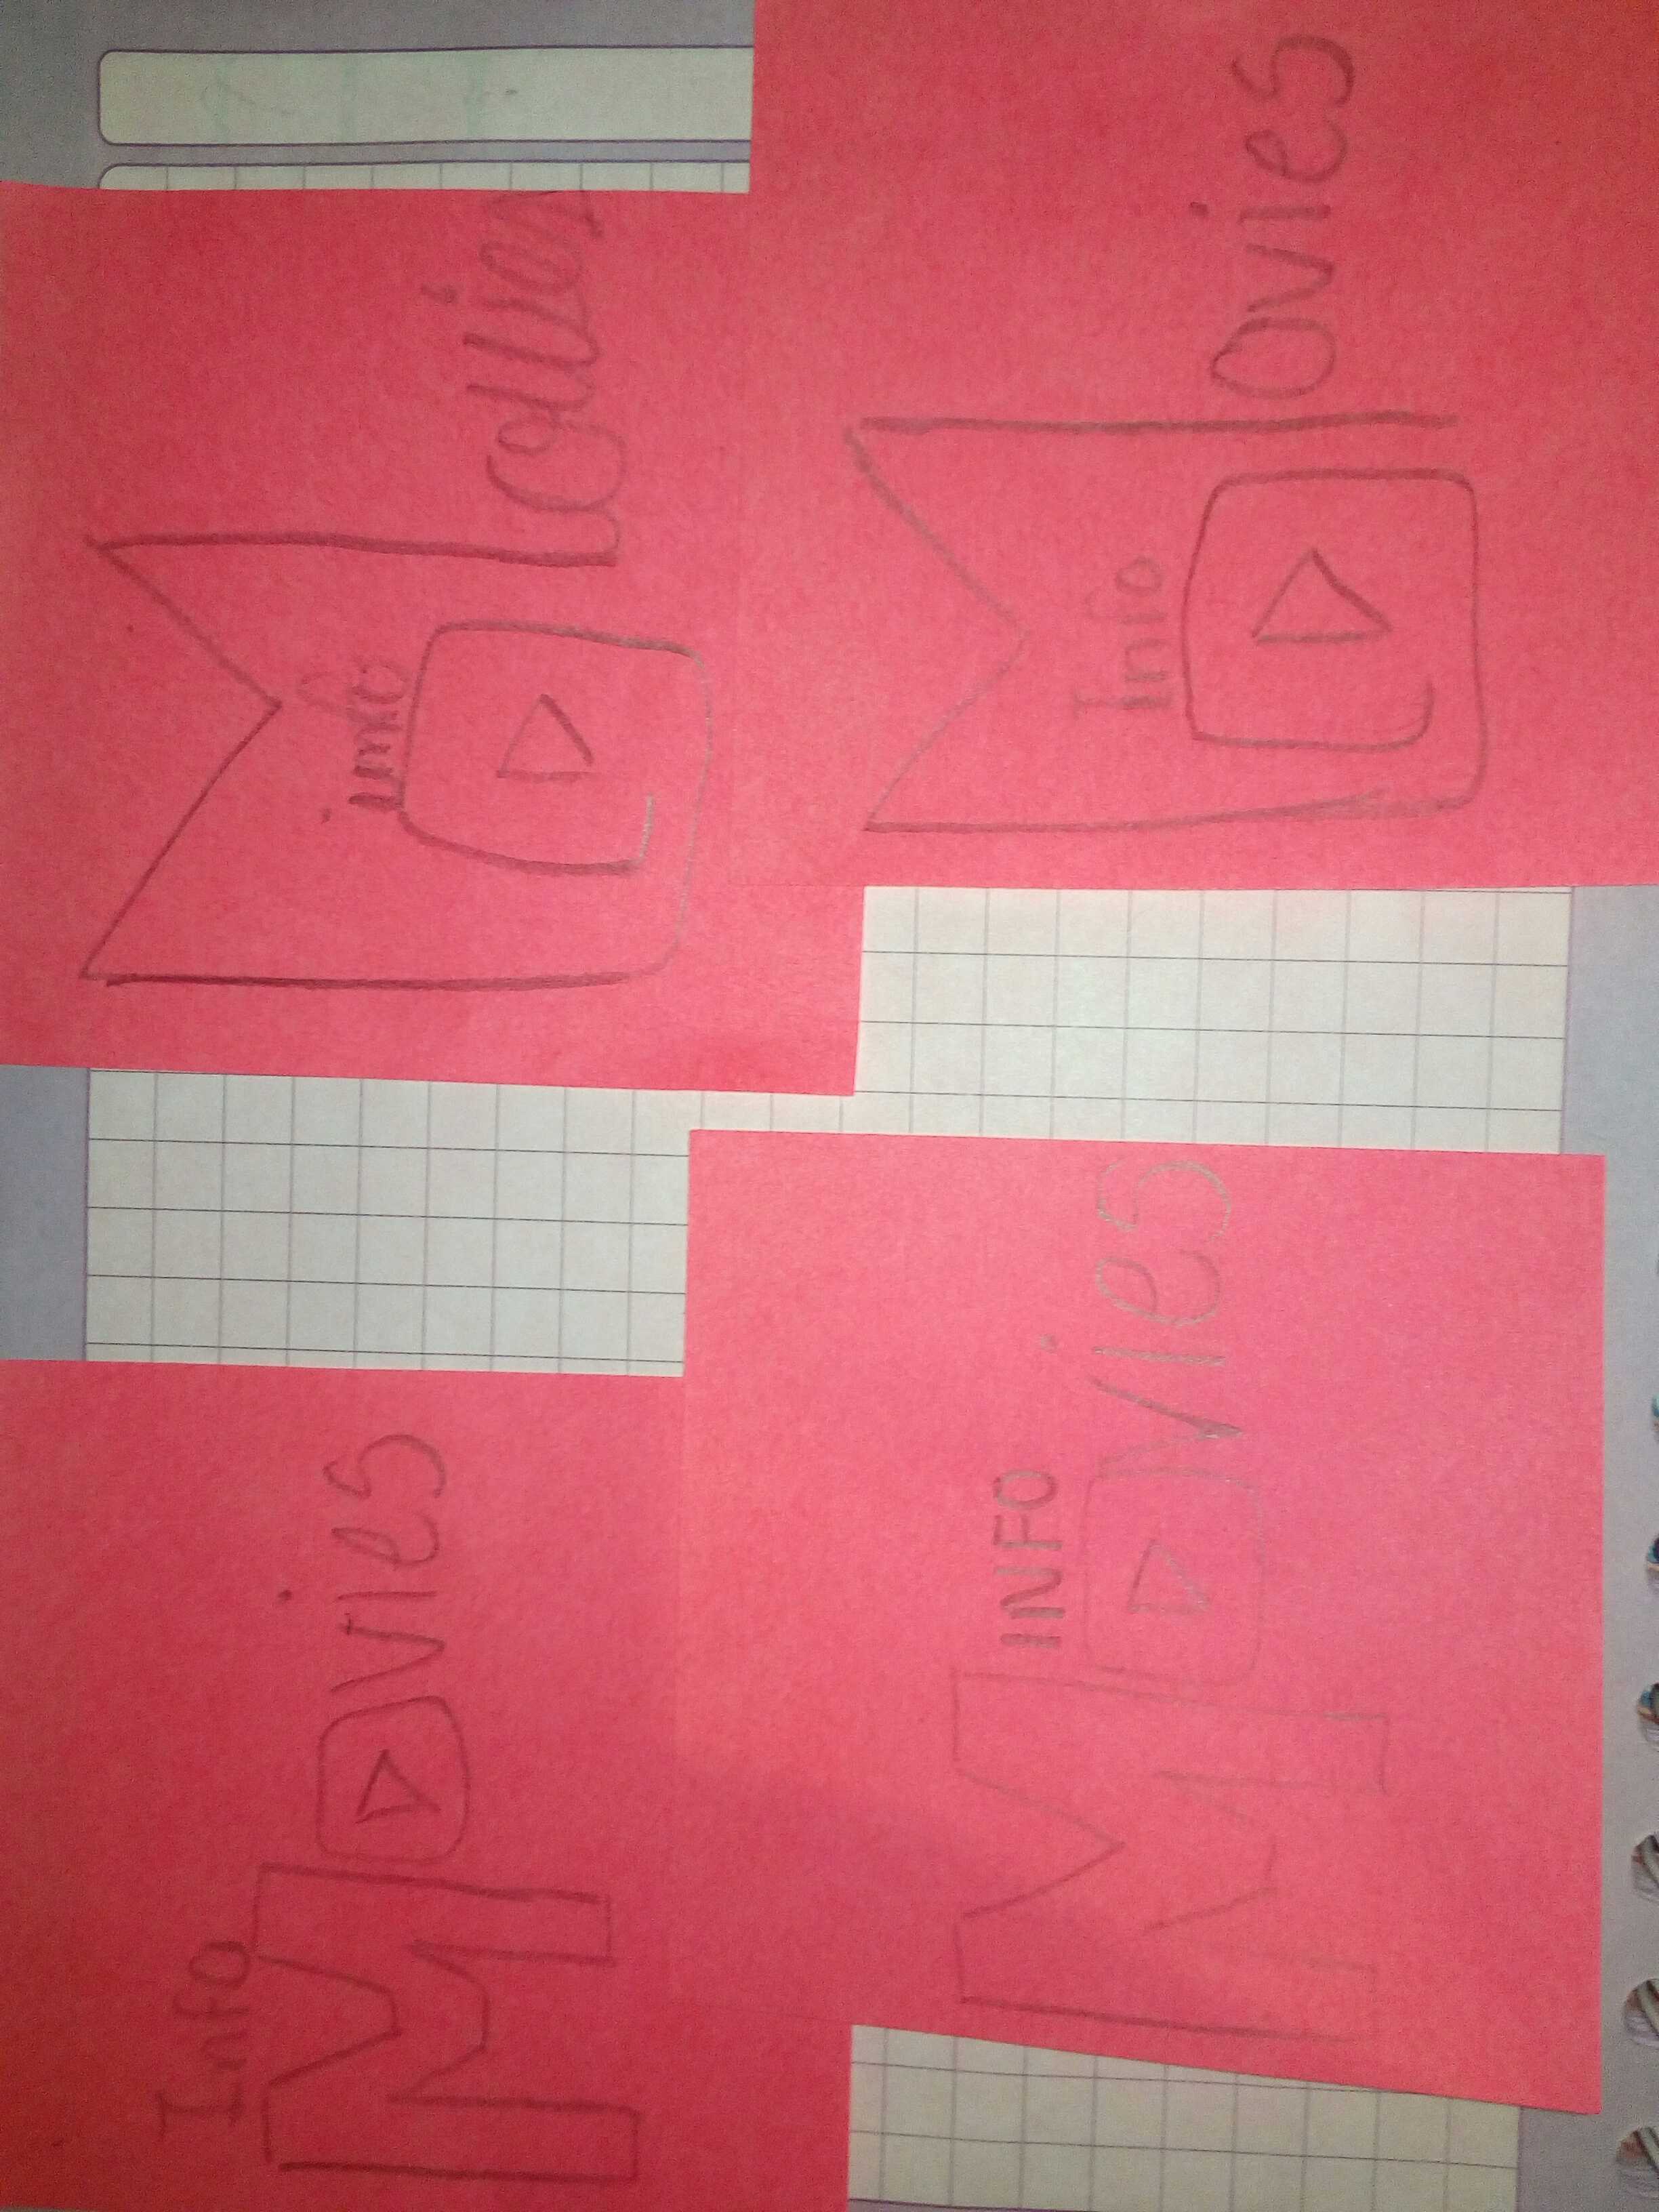 Info
M vies
info
Movies
INFO
M vies
Info
Movies